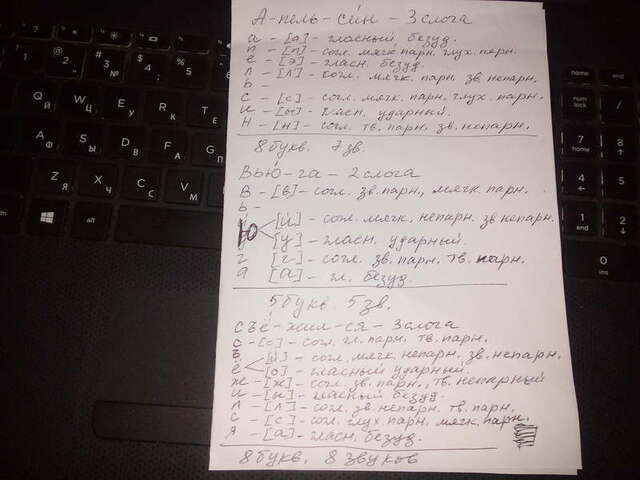 А-пель-си́н - 3 слога
а - [а] - гласный безуд.
п - [п] - согл. мягк. парн. глух. парн.
е - [э] - гласн. безуд.
л - [л] - согл. мягк. парн. зв. непарн.
ь -
с - [с] - согл. мягк. парн. глух. парн.
и - [и] - гласн. ударный.
н - [н] - согл. тв. парн. зв. непарн.
8 букв. 7 зв.
Вью́-га - 2 слога
В - [в] - согл. зв. парн., мягк. парн.
ь -
ю [й] - согл. мягк. непарн. зв. непарн.
[у] - гласн. ударный.
г [г] - согл. зв. парн. тв. парн.
а [а] - гл. безуд.
5 букв. 5 зв.
съё-жил-ся - 3 слога
с - [с] - согл. гл. парн. тв. парн.
ъ [й] - согл. мягк. непарн. зв. непарн.
ё [о] - гласный ударный.
ж - [ж] - согл. зв. парн., тв. непарный
и - [ы] - гласный безуд.
л - [л] - согл. зв. непарн. тв. парн.
с - [с] - согл. глух. парн. мягк. парн.
я - [а] - гласн. безуд.
8 букв, 8 звуков
home
end
num lock
7 home
8
4
5
1 end
2
0 ins
alt